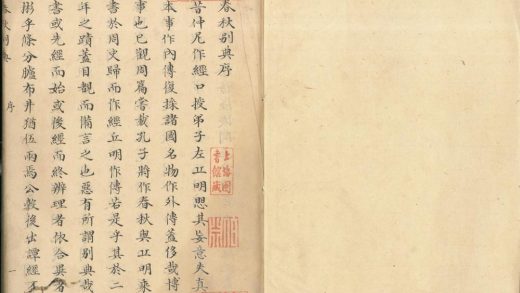 春秋别典序
昔仲尼作經口授弟子左丘明思其妄意失真
本事作內傳復採諸國名物作外傳蓋侈哉博
事也已觀周廟嘗載孔子將作春秋與丘明乘
書於周史歸而作經丘明作傳若是乎其於二
年之蹟蓋目覩而備言之也惡有所謂别典哉
書或先經而始或後經而終辦理者依合異者
彬乎條分臚布井猶伍兩焉公穀後出譚經
春秋别典
序
一
上海圖書館藏